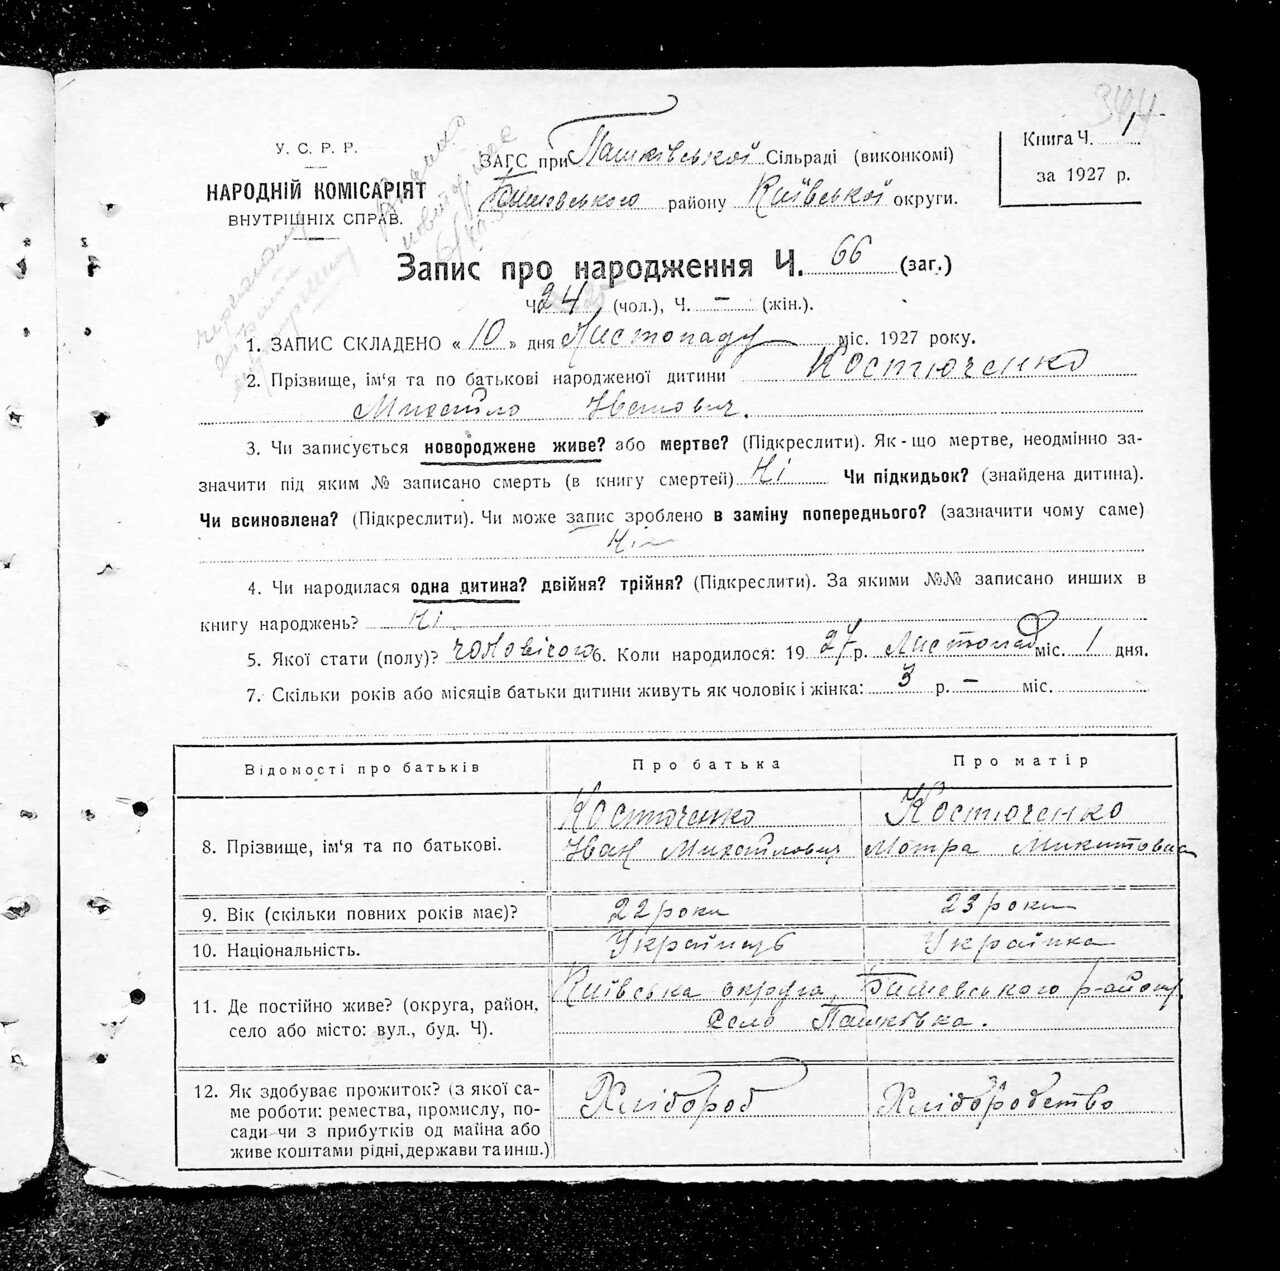 344
У. С. Р. Р.
НАРОДНІЙ КОМІСАРІЯТ
ВНУТРІШНІХ СПРАВ.
ЗАГС при Пашківської Сільраді (виконкомі)
Бишевського району Київської округи.
Книга Ч. 1
за 1927 р.
Запис про народження Ч. 66 (заг.)
Ч. 24 (чол.), Ч. – (жін.).
1. ЗАПИС СКЛАДЕНО « 10 » дня Листопаду міс. 1927 року.
2. Прізвище, ім'я та по батькові народженої дитини Костюченко
Михайло Іванович.
3. Чи записується новороджене живе? або мертве? (Підкреслити). Як-що мертве, неодмінно за-
значити під яким № записано смерть (в книгу смертей) Ні Чи підкидьок? (знайдена дитина).
Чи всиновлена? (Підкреслити). Чи може запис зроблено в заміну попереднього? (зазначити чому саме)
Ні
4. Чи народилася одна дитина? двійня? трійня? (Підкреслити). За якими №№ записано инших в
книгу народжень? Ні.
5. Якої стати (полу)? чоловічого 6. Коли народилося: 19 27 р. Листопад міс. 1 дня.
7. Скільки років або місяців батьки дитини живуть як чоловік і жінка: 3 р. – міс.
Відомості про батьків Про батька Про матір
8. Прізвище, ім'я та по батькові. Костюченко Іван Михайлович Костюченко Мотра Микитовна
9. Вік (скільки повних років має)? 22 роки 23 роки
10. Національність. Українць Українка
11. Де постійно живе? (округа, район, Київська округа, Бишевського району.
село або місто: вул., буд. Ч). село Пашківка.
12. Як здобуває прожиток? (з якої са- Хлібороб Хліборобство
ме роботи: ремества, промислу, по-
сади чи з прибутків од майна або
живе коштами рідні, держави та инш.)